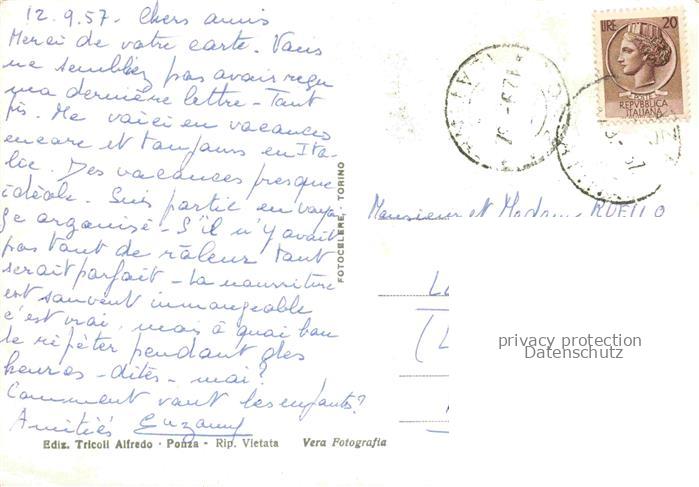 12.9.57. Chers amis
Merci de votre carte. Vous
me semblez pas avoir reçu
ma dernière lettre - Tant
pis. Me voici en vacances
encore et toujours en Ita-
lie. Des vacances presque
idéale. Suis partie en voya
ge organisé - S'il n'y avait
pas tant de râleur tout
serait parfait - La nourriture
est souvent immangeable
c'est vrai, mais à quoi bon
le répèter pendant des
heures - dites - moi?
Comment vont les enfants?
Amitiés
Ediz. Tricoli Alfredo - Ponza - Rip. Vietata Vera Fotografia
FOTOCELERE, - TORINO
LIRE 20
POSTE
REPVBBLICA
ITALIANA
Monsieur et Madame RUELLO
privacy protection
Datenschutz